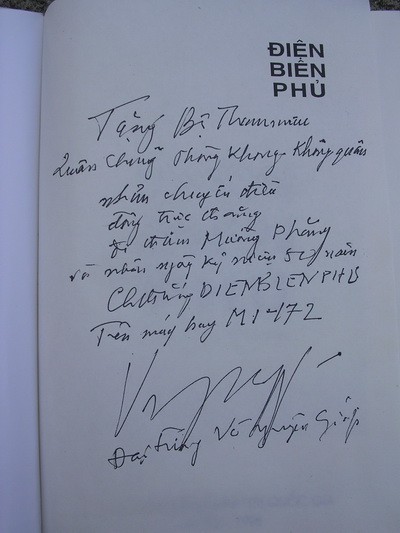 ĐIỆN
BIÊN
PHỦ
Tặng Bộ Tham mưu
Quân chủng Phòng Không - Không quân
nhân chuyến đi
trực thăng
đi thăm Mường Phăng
và nhân ngày kỷ niệm 50 năm
Chiến thắng DIENBIENPHU
Trên máy bay MI-172
Đại tướng Võ Nguyên Giáp